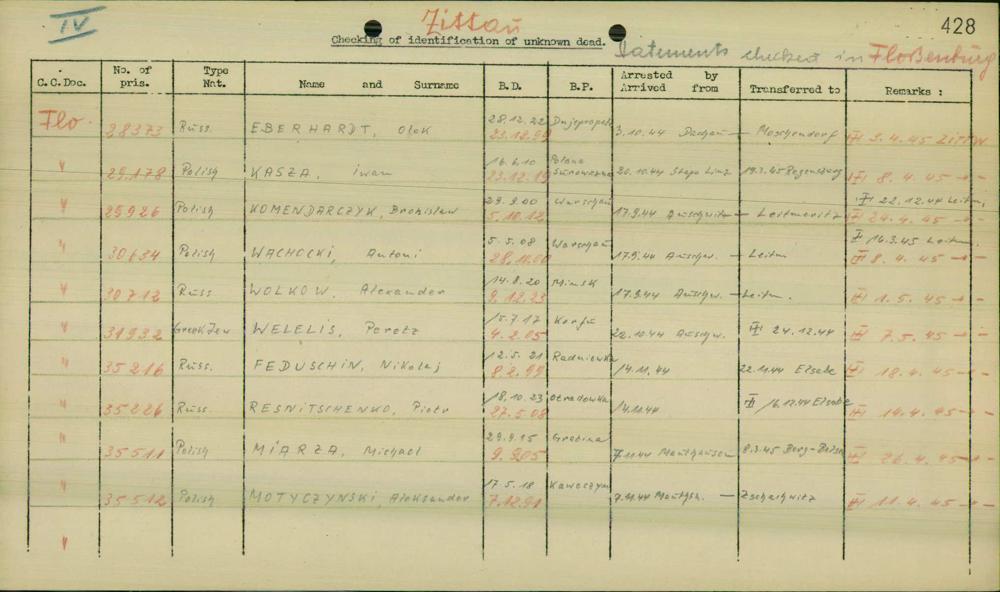 IV
Zittau
428
Checking of identification of unknown dead.
Statements checked in Floßenbürg
C.C.Doc.
No. of pris.
Type Nat.
Name and Surname
B.D.
B.P.
Arrested by
Arrived from
Transferred to
Remarks :
Flo. 28373 Russ. EBERHARDT, Olek 28.12.22 23.12.99 3.10.44 Dachau — Moschendorf 3.4.45
" 29178 Polish KASZA, Iwan 16.6.10 23.12.19 20.10.44 Stapo Linz 19.3.45 Regensburg 8.4.45 - -
" 29926 Polish KOMENDARCZYK, Bronislaw 29.9.00 5.10.12 Warschau 17.9.44 Auschwitz — Leitmeritz 22.12.44 Leitm. 24.4.45 - -
" 30634 Polish WACHOCKI, Antoni 5.5.08 28.11.00 Warschau 17.9.44 Auschw. — Leitm 16.3.45 Leitm. 8.4.45 - -
" 30712 Russ WOLKOW, Alexander 14.8.20 9.12.23 Minsk 17.9.44 Auschw. — Leitm. 1.5.45 - -
" 31932 Greek Jew WELELIS, Peretz 15.7.17 4.2.05 Korfu 22.10.44 Auschw. III 24.12.44 7.5.45 - -
" 35216 Russ. FEDUSCHIN, Nikolaj 12.5.21 8.2.99 Radniewka 14.11.44 22.11.44 Elsabe 18.4.45 - -
" 35226 Russ. RESNITSCHENKO, Piotr 18.10.23 27.5.08 Otradowka 14.11.44 16.12.44 Elsabe 14.4.45 - -
" 35511 Polish MIARZA, Michael 29.9.15 9.9.05 Grabina 7.11.44 Mauthausen 8.3.45 Berg-Belsen 26.4.45 - -
" 35512 Polish MOTYCZYNSKI, Aleksander 17.5.18 7.12.91 Kaweczyn 7.11.44 Mauthh. — Zschachwitz 11.4.45 - -
"